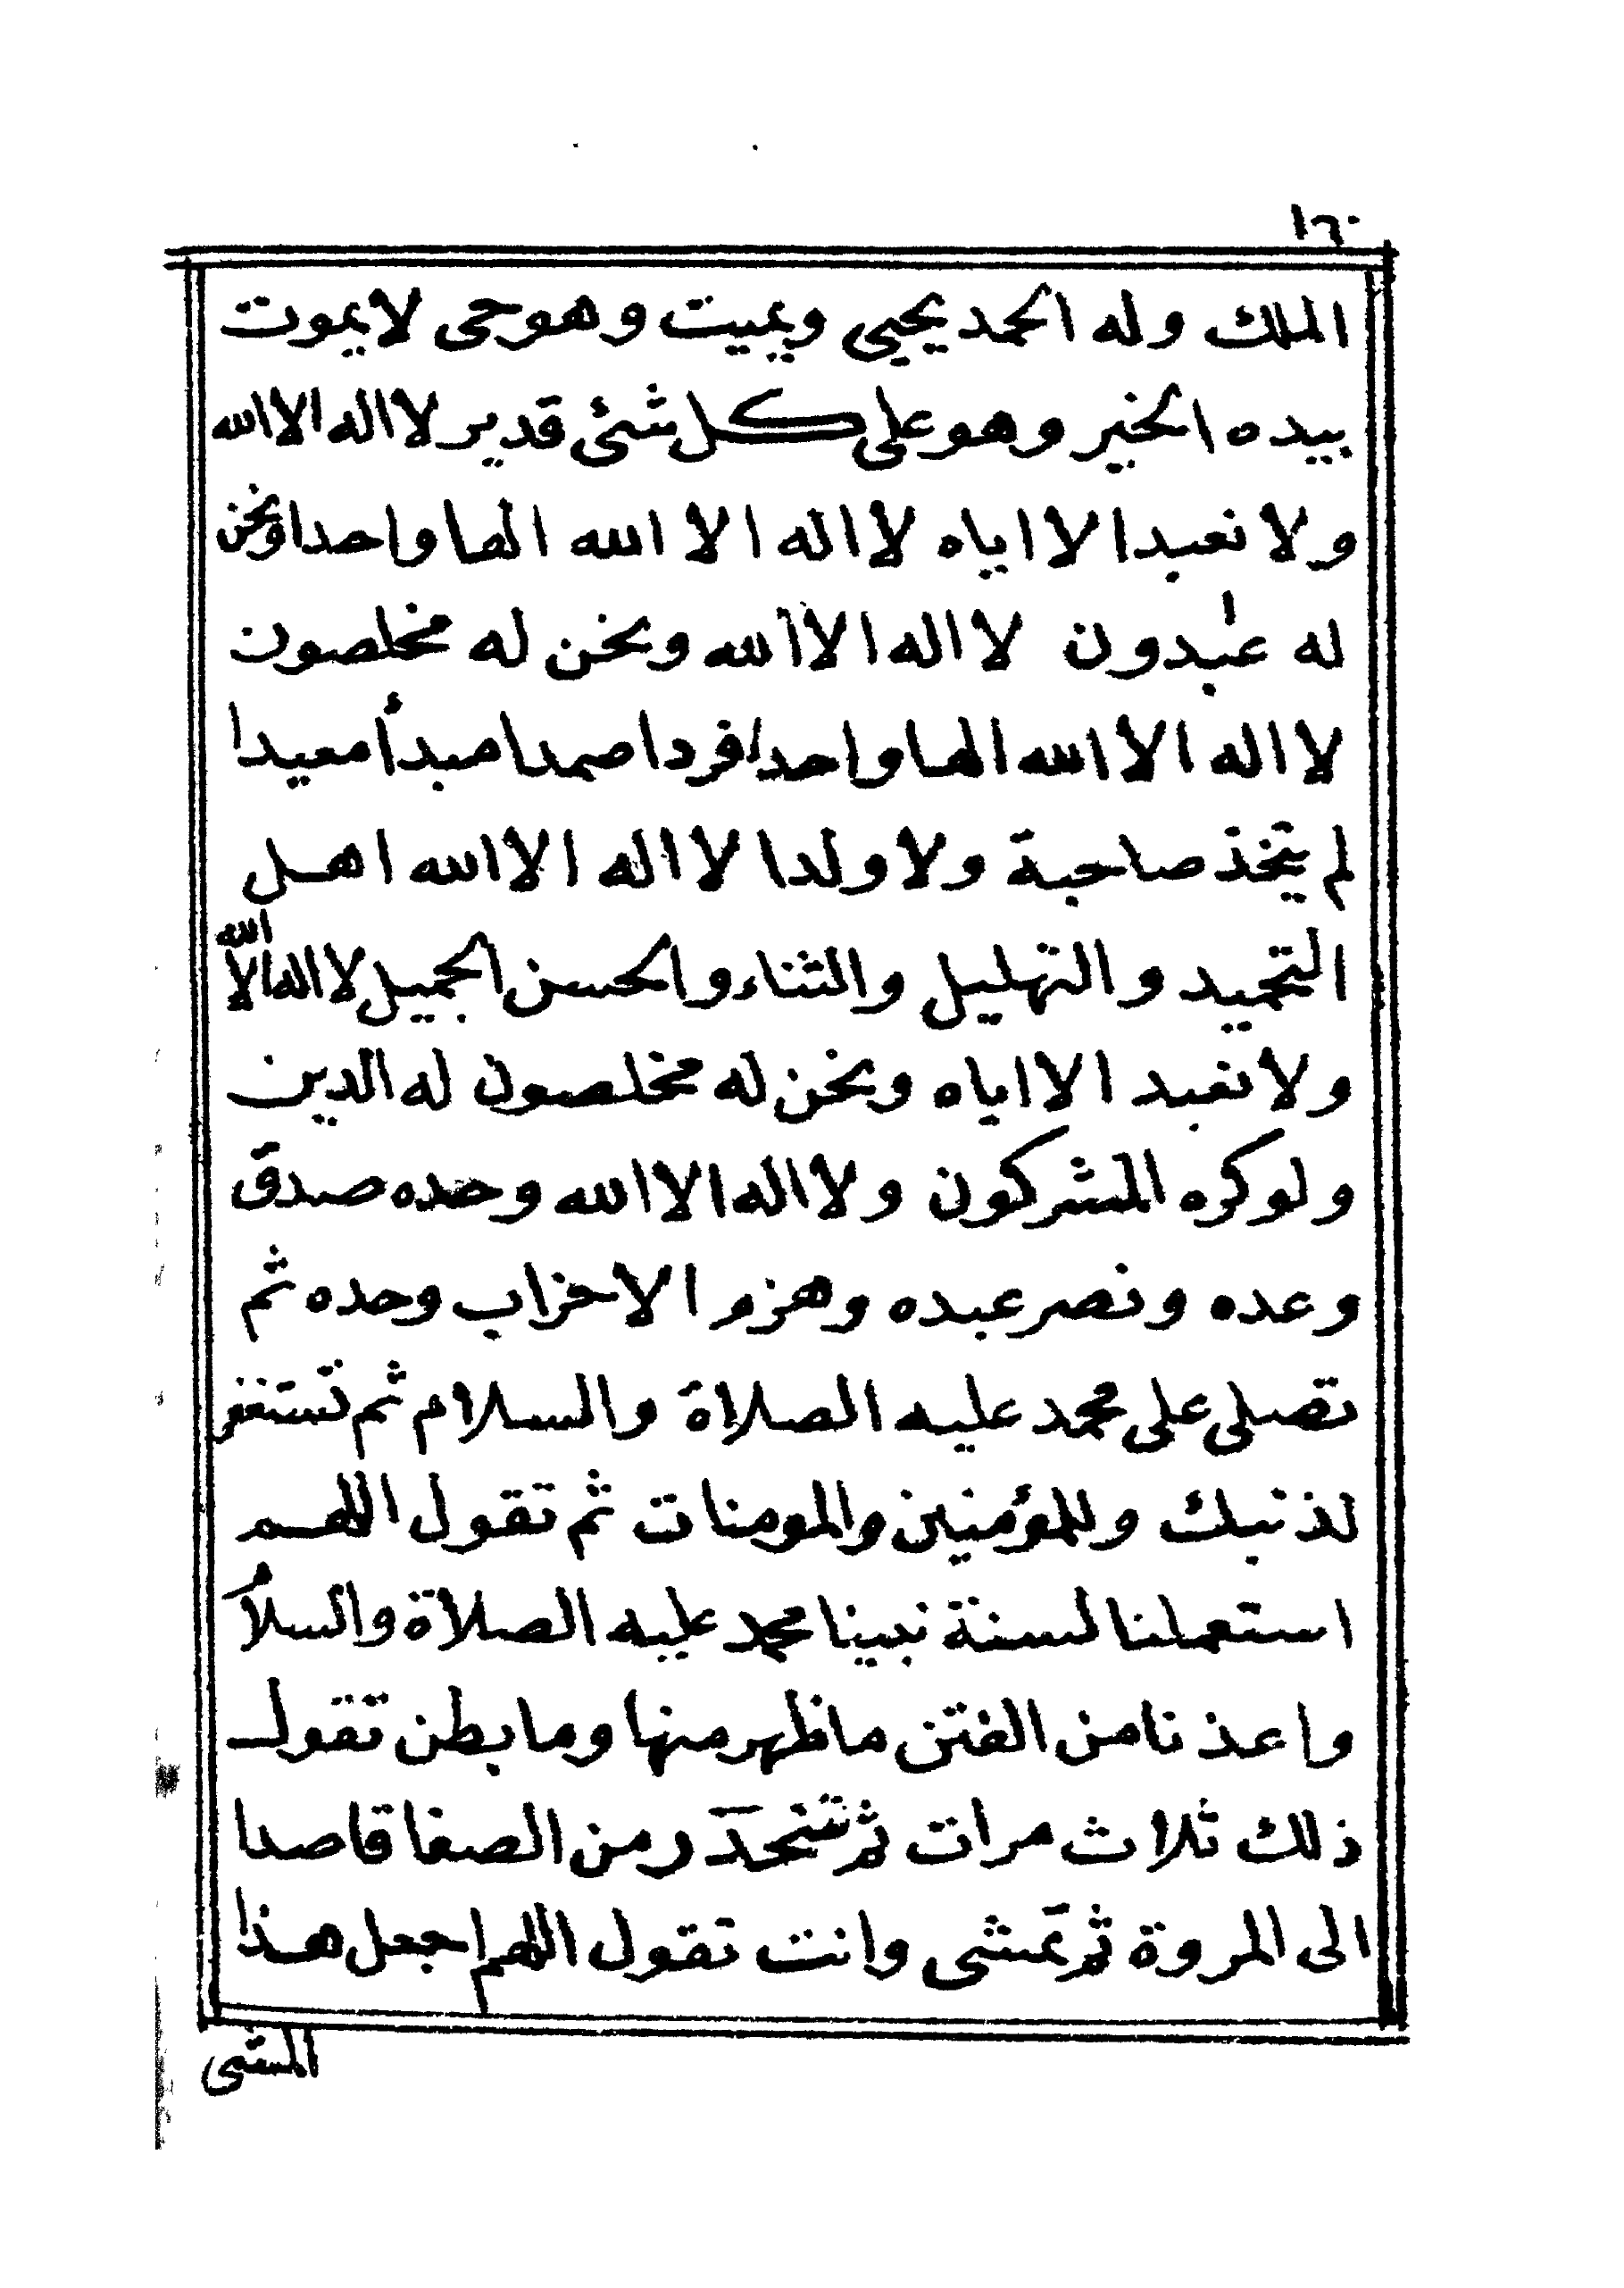 ١٦٠
الملك وله الحمد يحيي ويميت وهو حى لا يموت
بيده الخير وهو على كل شئ قدير لا اله الا الله
ولا نعبد الا اياه لا اله الا الله الها واحدا ونحن
له عبدون لا اله الا الله ونحن له مخلصون
لا اله الا الله الها واحدا فردا صمدا مبدأ معيدا
لم يتخذ صاحبة ولا ولدا لا اله الا الله اهل
التحميد والتهليل والثناء والحسن الجميل لا اله الا الله
ولا نعبد الا اياه ونحن له مخلصون له الدين
ولو كره المشركون ولا اله الا الله وحده صدق
وعده ونصر عبده وهزم الاحزاب وحده ثم
تصلى على محمد عليه الصلاة والسلام ثم تستغفر
لذنبك وللمؤمنين والمومنات ثم تقول اللهم
استعملنا لسنة نبينا محمد عليه الصلاة والسلام
واعذنا من الفتن ما ظهر منها وما بطن تقول
ذلك ثلاث مرات ثم تنحدر من الصفا قاصدا
الى المروة ثم تمشى وانت تقول اللهم اجعل هذا
المشى